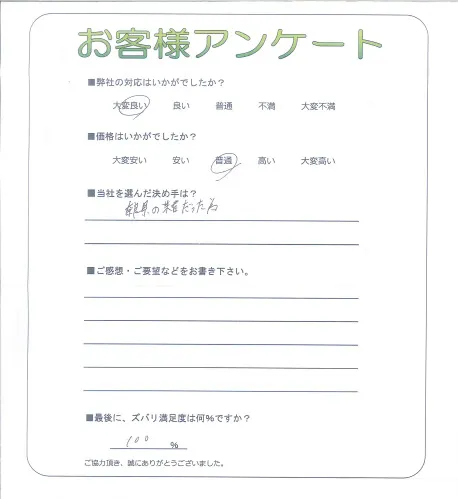 お客様アンケート
■弊社の対応はいかがでしたか？
大変良い 良い 普通 不満 大変不満
■価格はいかがでしたか？
大変安い 安い 普通 高い 大変高い
■当社を選んだ決め手は？
の だった為
■ご感想・ご要望などをお書き下さい。
■最後に、ズバリ満足度は何%ですか？
100 %
ご協力頂き、誠にありがとうございました。